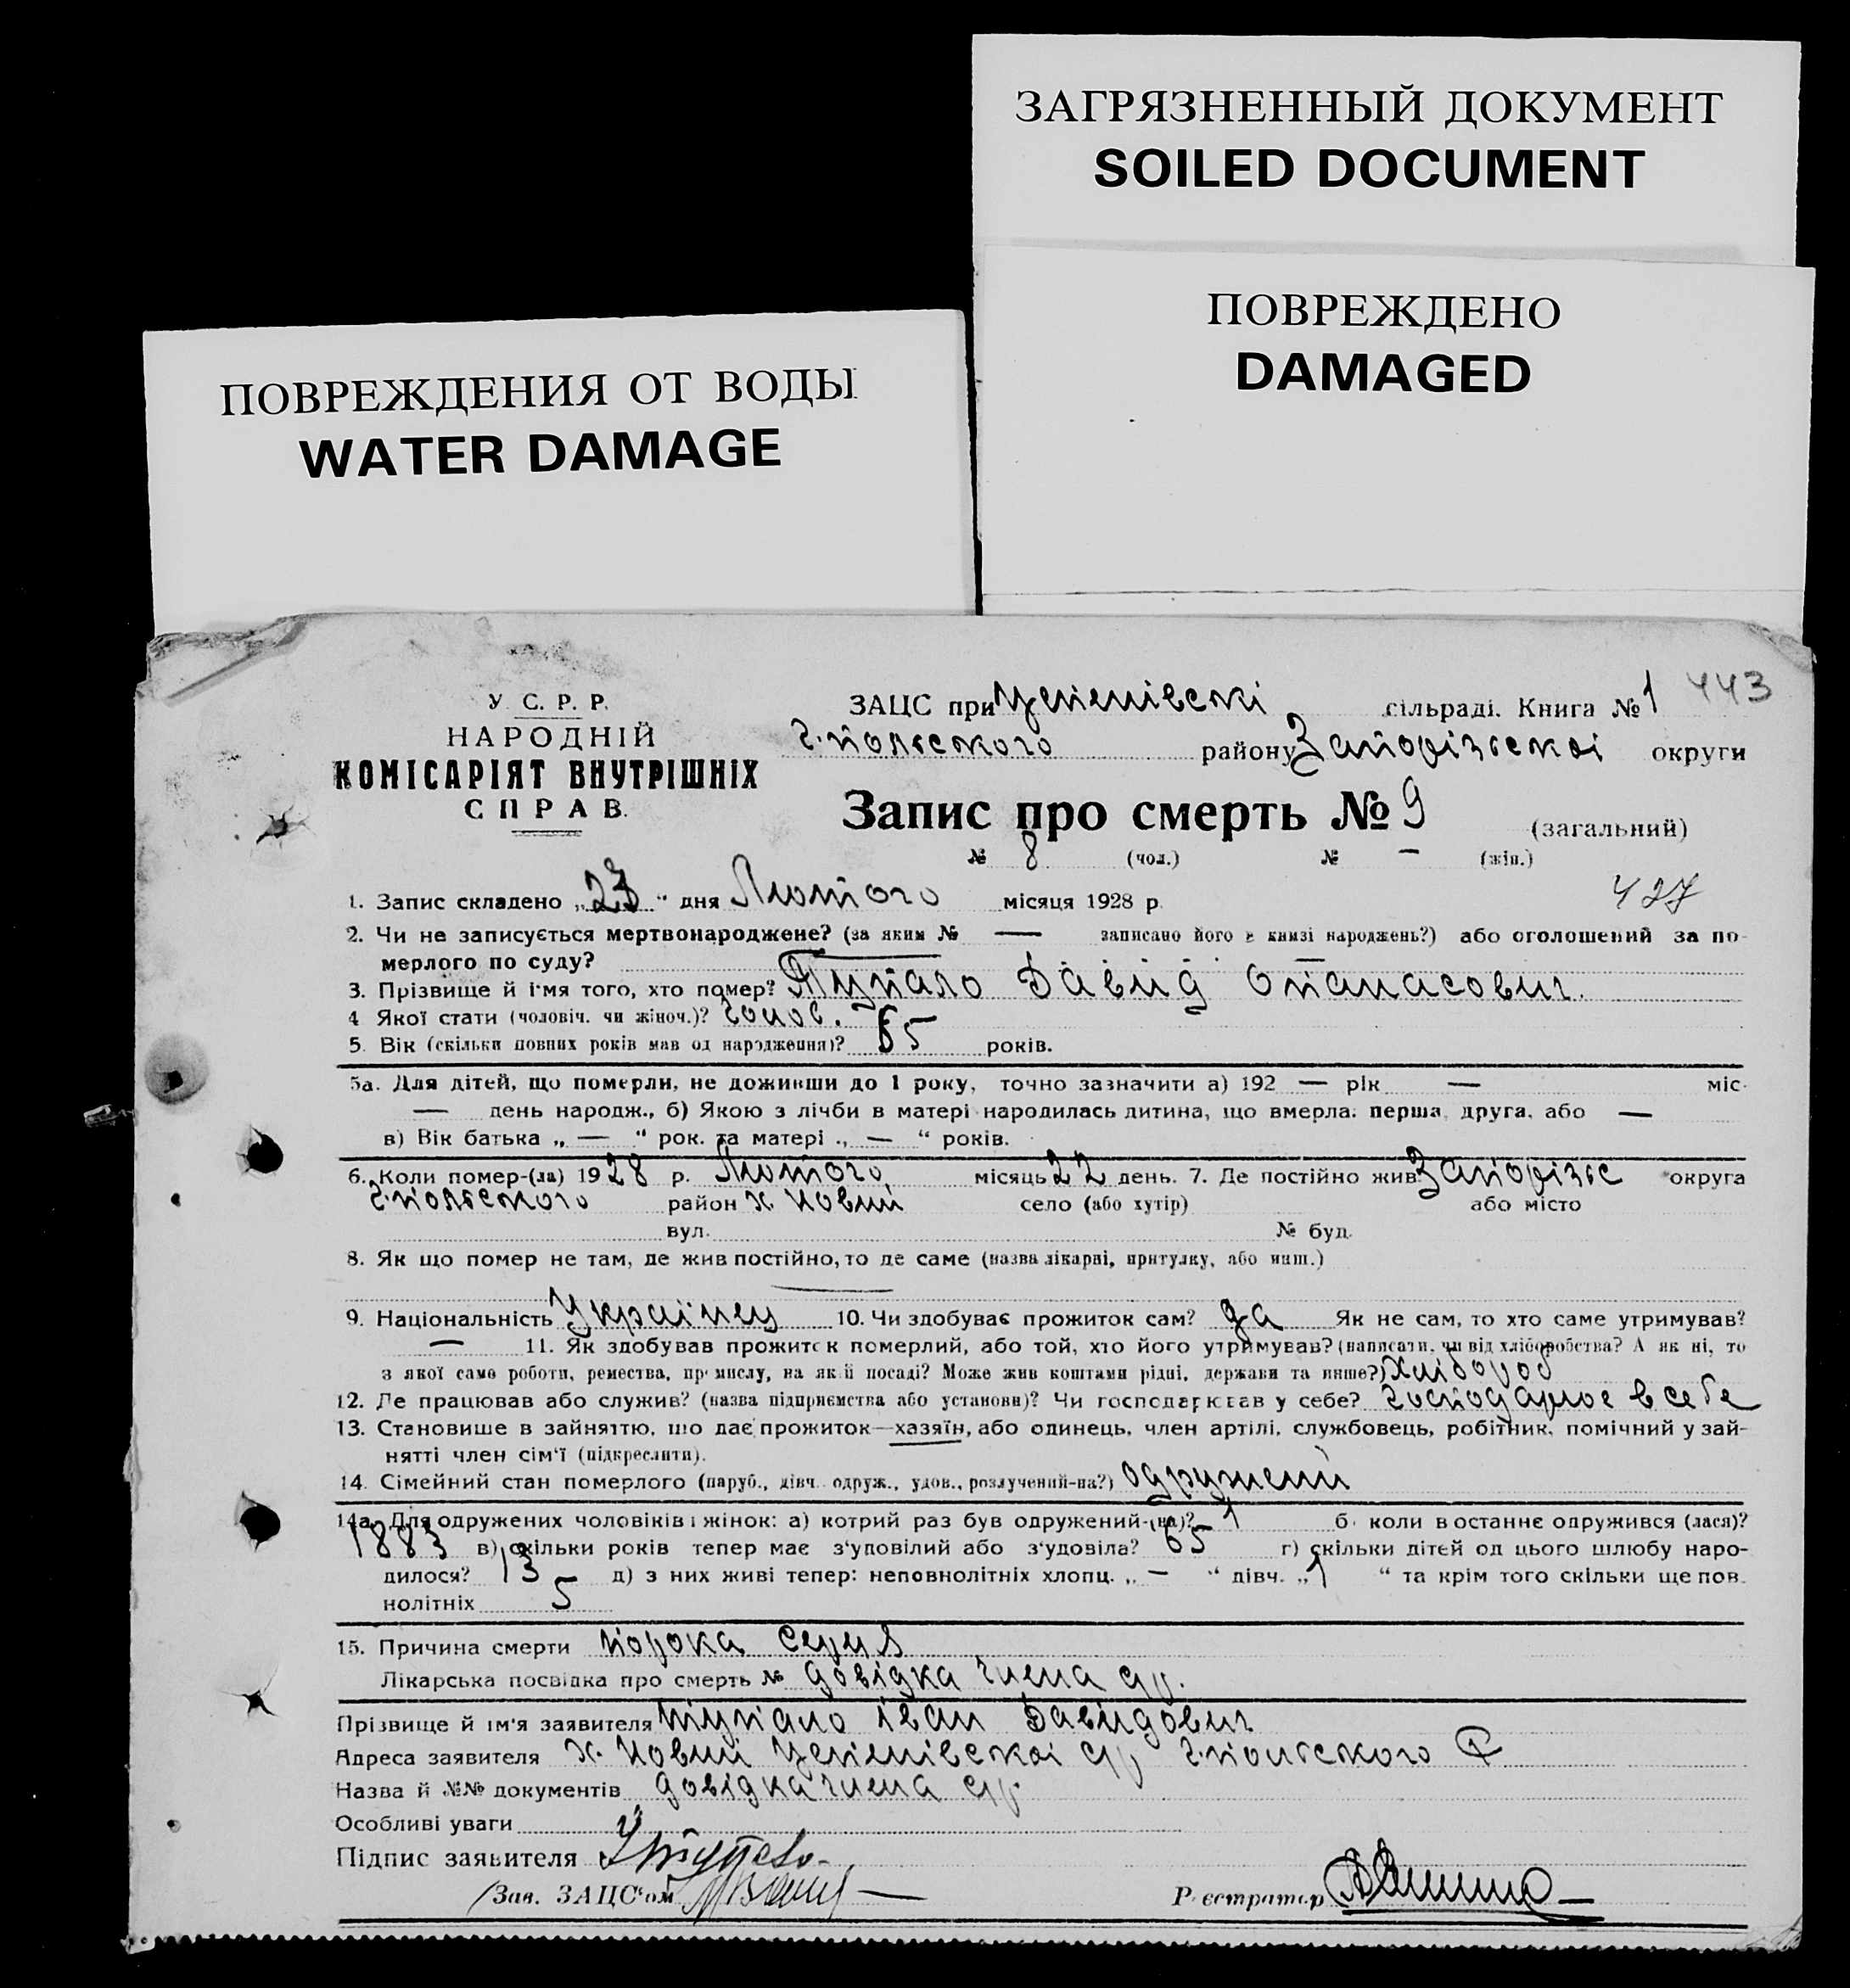 ЗАГРЯЗНЕННЫЙ ДОКУМЕНТ
SOILED DOCUMENT
ПОВРЕЖДЕНО
DAMAGED
ПОВРЕЖДЕНИЯ ОТ ВОДЫ
WATER DAMAGE
У. С. Р. Р.
НАРОДНІЙ
КОМІСАРІЯТ ВНУТРІШНІХ
СПРАВ.
ЗАЦС при Успенівскі сільраді. Книга № 1 443
г.польського району Запорізьскоі округи
Запис про смерть № 9 (загальний)
№ 8 (чол.) № — (жін.)
427
1. Запис складено „23“ дня Лютого місяця 1928 р.
2. Чи не записується мертвонароджене? (за яким № — записано його в книзі народжень?) або оголошений за по-
мерлого по суду? —
3. Прізвище й імя того, хто помер? Тупало Давид Опанасович.
4 Якої стати (чоловіч. чи жіноч.)? чолов.
5. Вік (скільки повних років мав од народження)? 65 років.
5а. Для дітей, що померли, не доживши до 1 року, точно зазначити а) 192 — рік — міс.
— день народж., б) Якою з лічби в матері народилась дитина, що вмерла: перша, друга, або —
в) Вік батька „ — “ рок. та матері „ — “ років.
6. Коли помер-(ла) 1928 р. Лютого місяць 22 день. 7. Де постійно жив Запорізьс округа
г.польського район х Новий село (або хутір) або місто
вул. № буд.
8. Як що помер не там, де жив постійно, то де саме (назва лікарні, притулку, або инш.)
—
9. Національність Україиец 10. Чи здобуває прожиток сам? да Як не сам, то хто саме утримував?
— 11. Як здобував прожиток померлий, або той, хто його утримував? (написати, чи від хліборобства? А як ні, то
з якої саме роботи, ремества, промислу, на якій посаді? Може жив коштами рідні, держави та инше?) Хлібороб
12. Де працював або служив? (назва підприємства або установи)? Чи господарював у себе? господарюе в себе
13. Становище в зайняттю, що дає прожиток—хазяїн, або одинець, член артілі, службовець, робітник, помічний у зай-
нятті член сім'ї (підкреслити).
14. Сімейний стан померлого (паруб., дівч. одруж., удов., розлучений-на?) одружений
14а. Для одружених чоловіків і жінок: а) котрий раз був одружений-(на)? 1 б) коли востаннє одружився (лася)?
1883 в) скільки років тепер має з'удовілий або з'удовіла? 65 г) скільки дітей од цього шлюбу наро-
дилося? 13 д) з них живі тепер: неповнолітніх хлопц. „ — “ дівч. „ 1 “ та крім того скільки ще пов.
нолітніх 5
15. Причина смерти порока серця
Лікарська посвідка про смерть № довідка члена с/р.
Прізвище й ім'я заявителя Тупало Іван Давидович
Адреса заявителя х. Новий Успенівскоі с/р г.польського Р
Назва й №№ документів довідка члена с/р.
Особливі уваги
Підпис заявителя
Зав. ЗАЦС'ом
Реєстратор